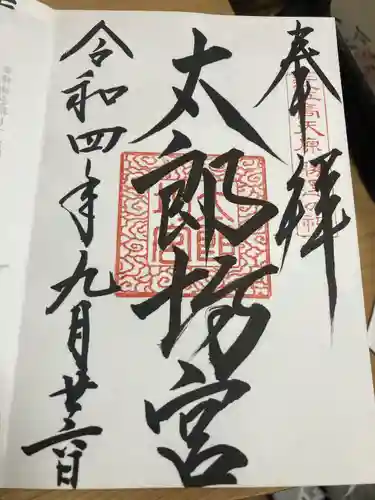 奉拝
太郎坊宮
令和四年九月廿六日